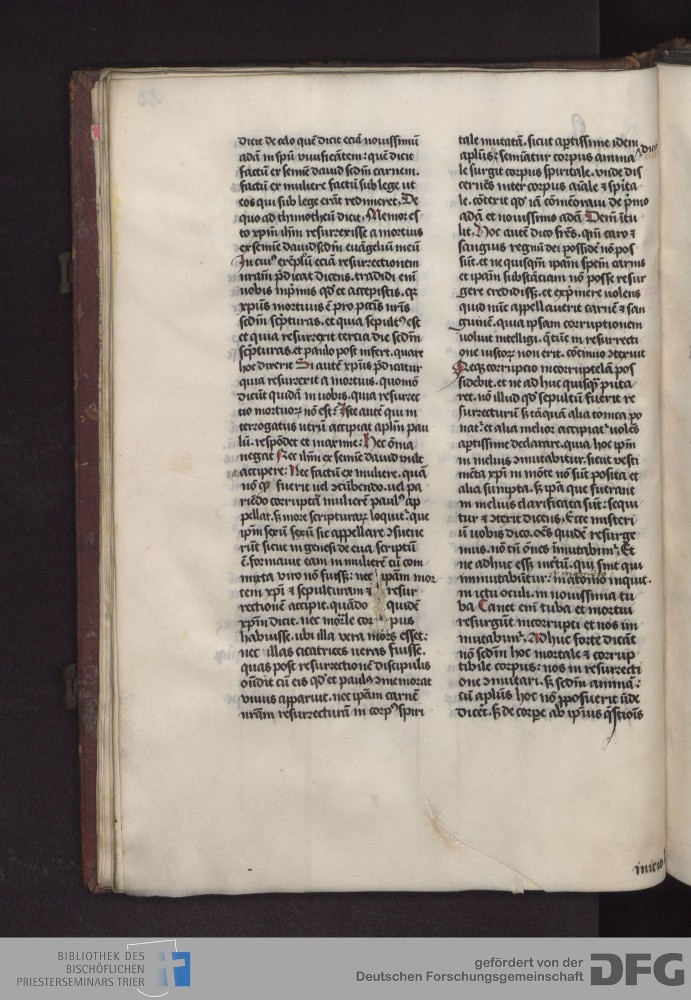 dicit de celo quē dicit eciā nouissimū
adā in spm̄ viuificātem: quē dicit
factū ex semīe dauid scdm̄ carnem.
factū ex muliere factū sub lege ut
eos qui sub lege erāt redimeret. De
quo ad thimotheū dicit. Memor es
to xpm̄ ihm̄ resurrexisse a mortuis
ex semīe dauid scdm̄ euāgeliū meū
In cuiꝰ exēplū eciā resurrectionem
nrām p̄dicat dicens. tradidi enī
uobis inprimis qd̄ et accepistis. qr
xpūs mortuus ē pro pccīs nrīs
scdm̄ scpturas. et quia sepultꝰ est
et quia resurrexit tercia die scdm̄
scpturas. et paulo post infert. quare
hoc dixerit Si autē xpūs p̄dicatur
quia resurrexit a mortuis. quomō
dicūt quidā in uobis. quia resurrec
tio mortuoꝝ nō est? Iste autē qui in
terrogatus utrū accipiat aplm̄ pau
lū. respōdet et maxime: Hec om̄ia
negat Nec ihm̄ ex semīe dauid vult
accipere: Nec factū ex muliere. quā
nō qꝫ fuerit uel ↄcūbendo. uel pa
riēdo corruptā mulierē paulꝰ ap
pellat. sꝫ more scripturaꝝ loquitꝰ que
ipm̄ sexū sexū sic appellare ↄsueue
rūt sicut in genesi de eua scriptū
ē. formauit eam in mulierē cū com
mixta viro nō fuissꝫ: nec ipām mor
tem xpī ⁊ sepulturam ⁊ resur
rectionē accipit. quādo quidē
xpm̄ dicit. nec mor̄le cor pus
habuisse. ubi illa vera mors esset:
nec illas cicatrices ueras fuisse.
quas post resurrectionē discipulis
oñdit cū eis qd̄ et paulꝰ ↄmemorat
viuus apparuit. nec ipām carnē
nrām resurrecturā in corpꝰ spiri
tale mutatā. sicut aptissime idem
aplūs dicit seminatur corpus anima
le surgit corpus spiritale. vnde dis
cernēs inter corpus aīale ⁊ spīta
le. cōtexit qd̄ iā cōmēoraui de p̄mo
adā et nouissimo adā Dem̄ ītu
lit. Hoc autē dico frēs. qm̄ caro ⁊
sanguis regnū dei possidē nō pos
sūt. et ne quisqm̄ ipām spēm carnis
et ipām substāciam nō posse resur
gere credidissꝫ. et exp̄mere uolens
quid nūc appellauerit carnē ⁊ san
guinē. quia ipsam corruptionem
voluit intelligi. q̄ tūc in resurrecti
one iustoꝝ non erit. cōtinuo ↄtexuit
Neqꝫ corruptio incorruptelā pos
sidebit. et ne ad huc quisqꝫ puta
ret. nō illud qd̄ sepultū fuerit re
surrecturū sꝫ tāquā alia tonica po
nat: et alia melior accipiat: uolēs
aptissime declarare. quia hoc ipm̄
in melius ↄmutabitur. sicut vesti
mēta xpī in mōte nō sūt posita et
alia sumpta. sꝫ ipā que fuerant
in melius clarificata sūt: sequi
tur ⁊ ↄtexit dicens. Ecce misteri
ū uobis dico. oēs quidē resurge
mus. nō tū om̄es īmutabimꝰ. Et
ne adhuc essꝫ inc̄tū. qui sint qui
inmutabūtur: in atomo inquit.
in ictu oculi. in nouissima tu
ba Canet enī tuba et mortui
resurgūt incorrupti et nos in
mutabimꝰ. Ad huc forte dicāt
nō scdm̄ hoc mortale ⁊ corrup
tibile corpus: nos in resurrecti
one ↄmutari. sꝫ scdm̄ animā:
cū aplūs hoc nō p̄posuerit ūde
dicēt. sꝫ de corpe ab ip̄ius q̄stiōis
inicio
BIBLIOTHEK DES
BISCHÖFLICHEN
PRIESTERSEMINARS TRIER
gefördert von der
Deutschen Forschungsgemeinschaft
DFG